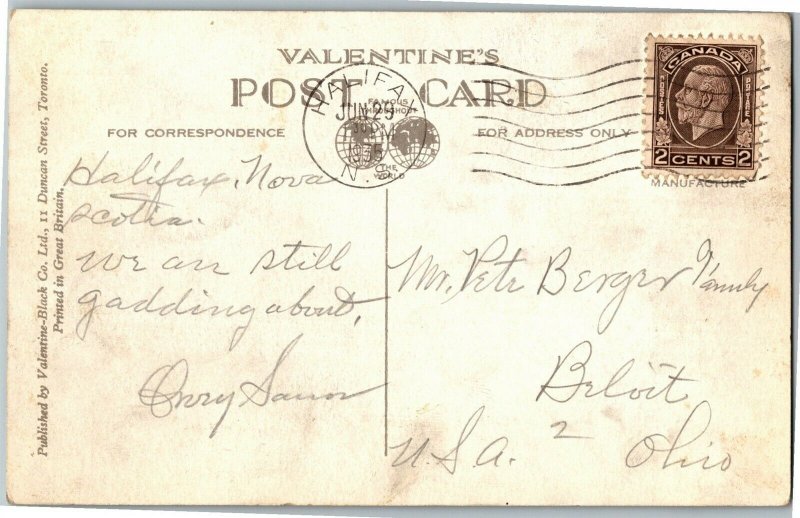 VALENTINE'S
POST CARD
FAMOUS
THROUGHOUT
THE
WORLD
FOR CORRESPONDENCE
FOR ADDRESS ONLY
HALIFAX
JUN 29
PM
N.
CANADA
POSTES
POSTAGE
2 CENTS 2
MANUFACTURE
Published by Valentine-Black Co. Ltd., 11 Duncan Street, Toronto.
Printed in Great Britain.
Halifax, Nova
Scotia.
We are still
gadding about.
Mr. Pete Berger Family
Beloit
2
U.S.A. Ohio